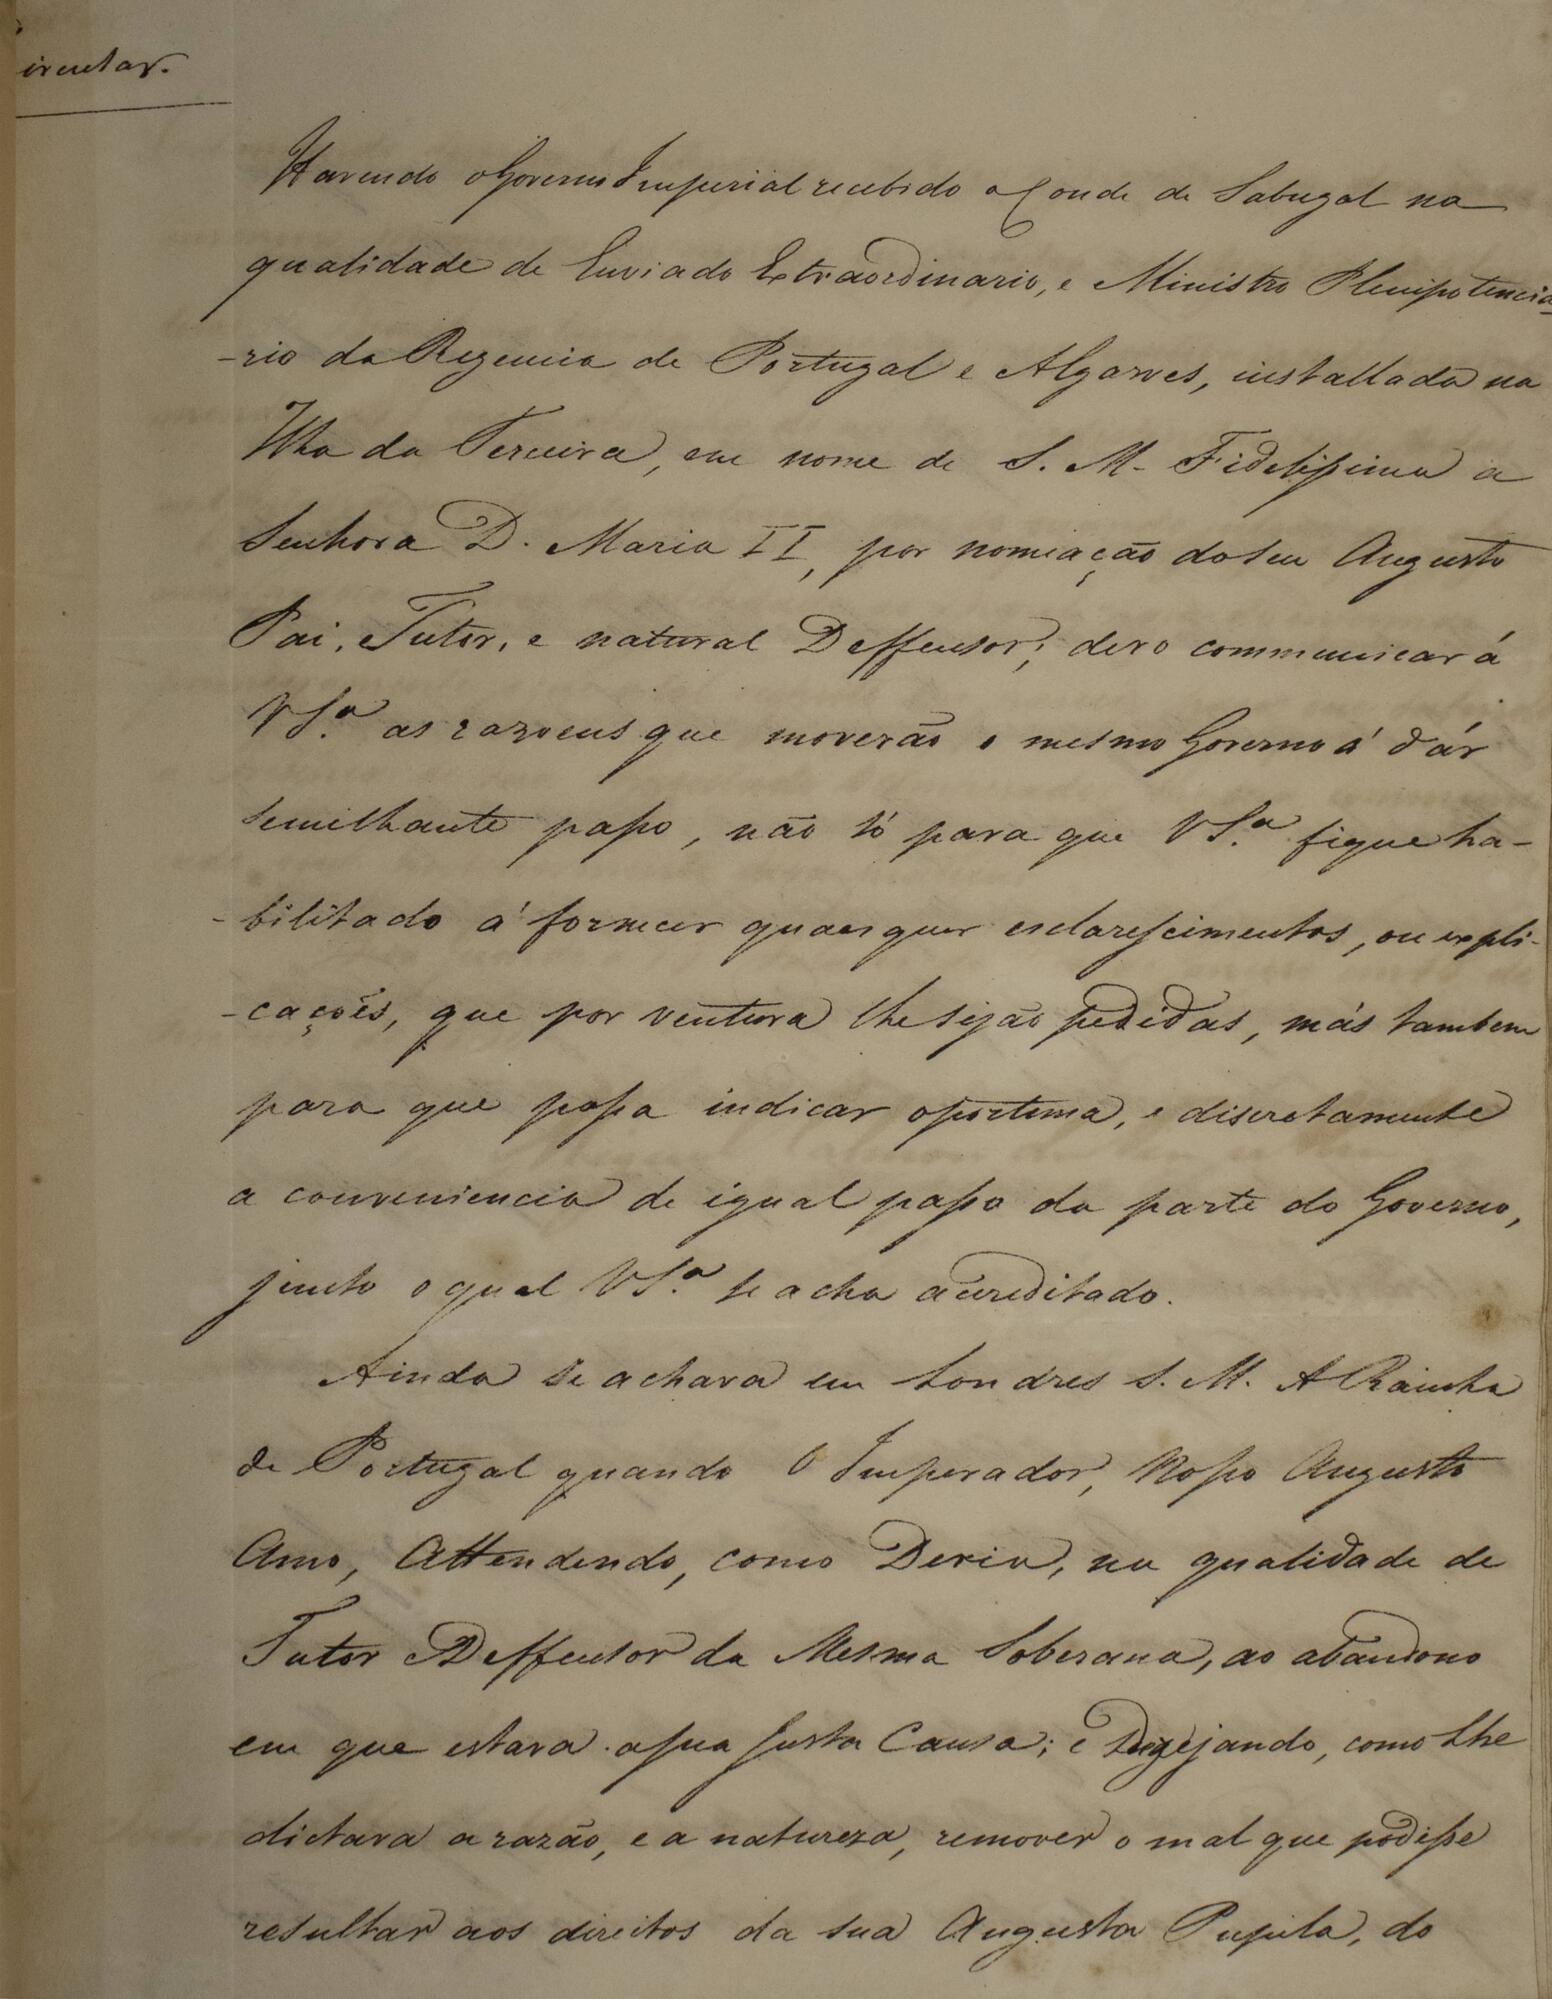 ircular.
Havendo o Governo Imperial recebido o Conde de Sabugal na
qualidade de Enviado Extraordinario, e Ministro Plenipotencia
-rio da Regencia de Portugal e Algarves, installada na
Ilha da Terceira, em nome de S. M. Fidelissima a
Senhora D. Maria II, por nomiação do seu Augusto
Pai, Tutor, e natural Deffensor; devo communicar á
VSª. as razoens que moverão o mesmo Governo á dár
semilhante passo, não só para que VSª. fique ha-
-bilitado á fornecer quaesquer esclarescimentos, ou expli-
-cações, que por ventura lhe sejão pedidas, más tambem
para que possa indicar oportuna, e discretamente
a conveniencia de igual passo da parte do Governo,
junto o qual VSª. se acha acreditado.
Ainda se achava em Londres S. M. A Rainha
de Portugal quando O Imperador, Nosso Augusto
Amo, Attendendo, como Devia, na qualidade de
Tutor e Deffensor da Mesma Soberana, ao abandono
em que estava a sua Justa Causa; e Dezejando, como Lhe
dictava a razão, e a natureza, remover o mal que podesse
resultar aos direitos da sua Augusta Pupila, do